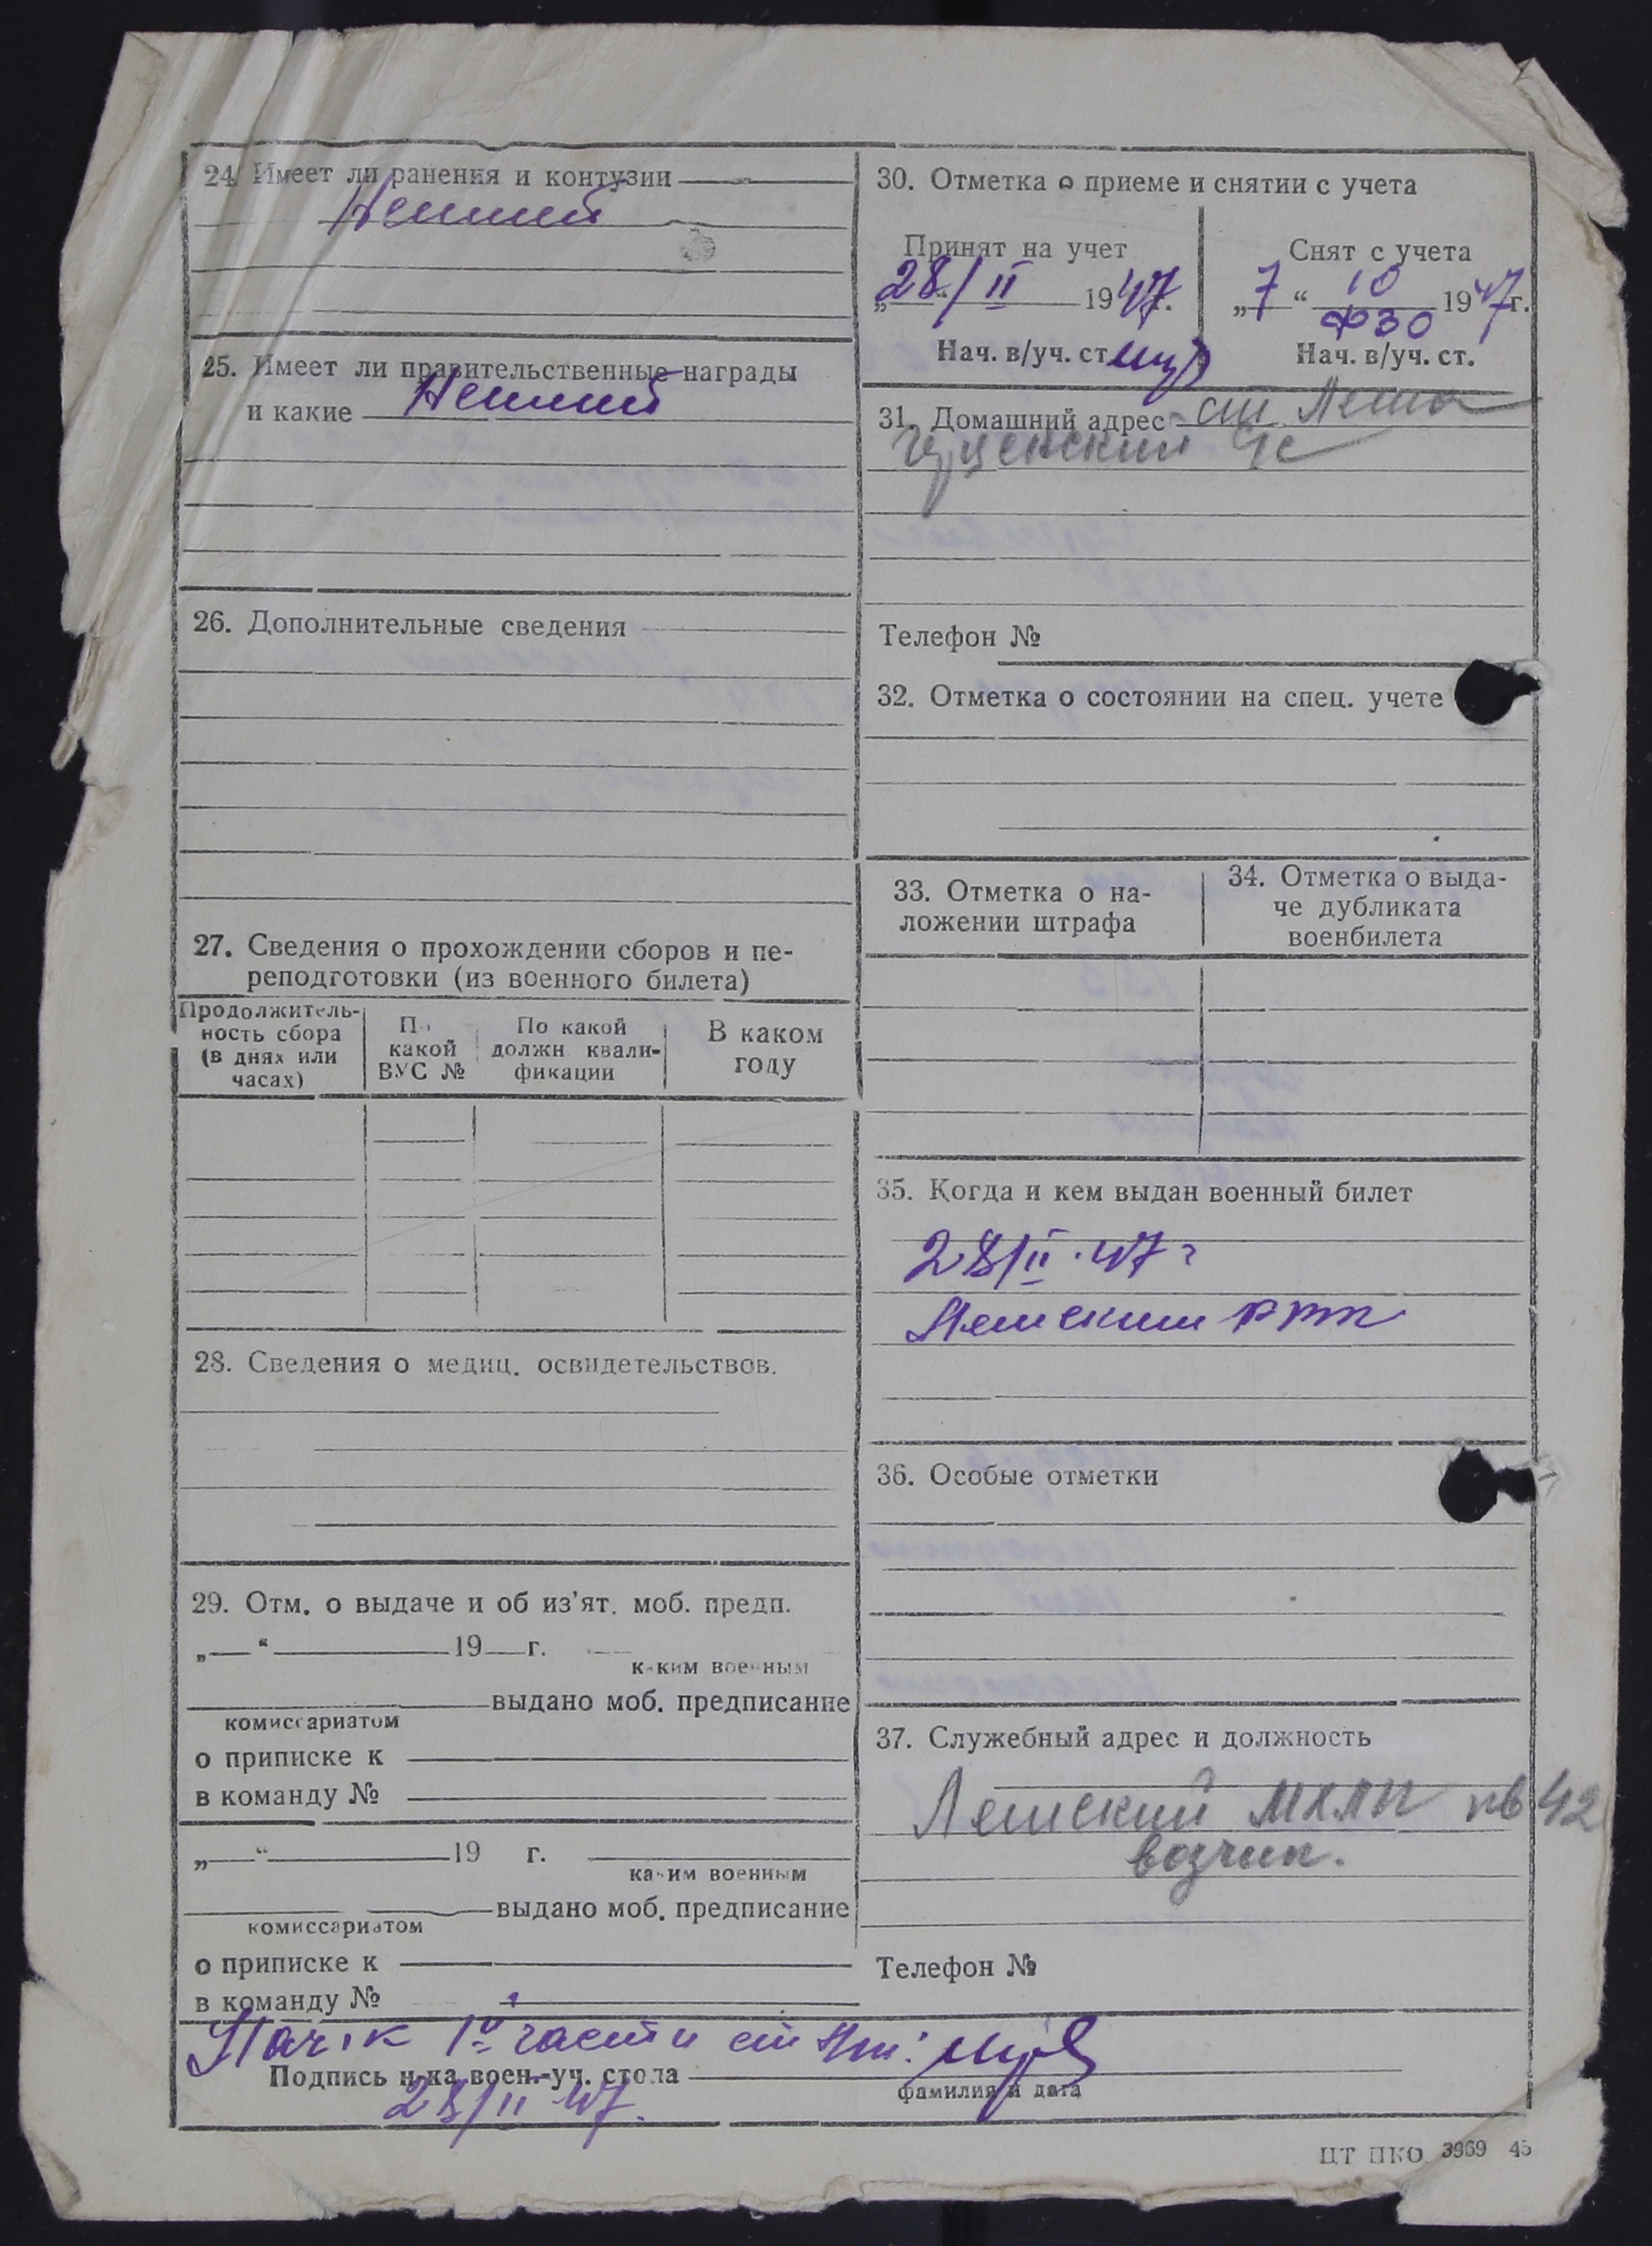 24. Имеет ли ранения и контузии
25. Имеет ли правительственные награды
и какие
26. Дополнительные сведения
27. Сведения о прохождении сборов и пе-
реподготовки (из военного билета)
Продолжитель-
ность сбора
(в днях или
часах)
По
какой
ВУС №
По какой
должн квали-
фикации
В каком
году
28. Сведения о медиц. освидетельствов.
29. Отм. о выдаче и об из'ят. моб. предп.
„ “ 19 г.
каким военным
выдано моб. предписание
комиссариатом
о приписке к
в команду №
„ “ 19 г.
каким военным
выдано моб. предписание
комиссариатом
о приписке к
в команду №
30. Отметка о приеме и снятии с учета
Принят на учет
„28“/II 1947г.
Нач. в/уч. ст.
Снят с учета
„7“ 10 1947г.
ФЗО
Нач. в/уч. ст.
31. Домашний адрес ст
Телефон №
32. Отметка о состоянии на спец. учете
33. Отметка о на-
ложении штрафа
34. Отметка о выда-
че дубликата
военбилета
35. Когда и кем выдан военный билет
28/II.47 г
36. Особые отметки
37. Служебный адрес и должность
42
возчик.
Телефон №
1й части
Подпись н-ка воен.-уч. стола
фамилия и дата
28/II 47.
ЦТ ПКО 3969 45